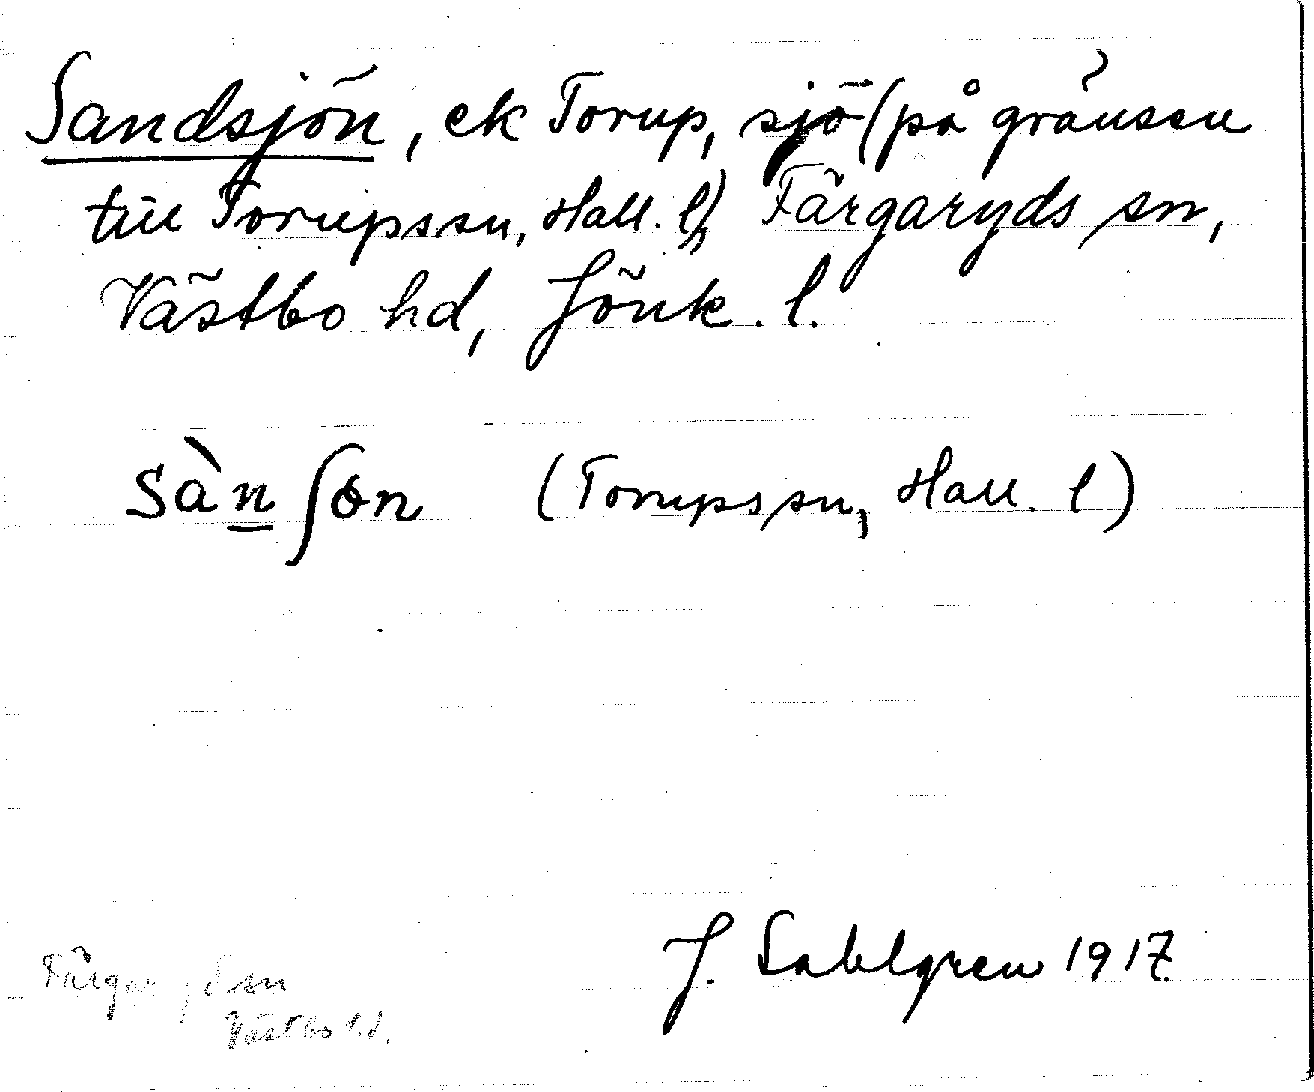 Sandsjön, ek Torup, sjö (på gränsen
till Torupssn, Hall. l), Färgaryds sn,
Västbo hd, Jönk. l.
sàn̲ʃɵn (Torupssn, Hall. l)
J. Sahlgren 1917.
Färgaryds sn
Västbo hd.